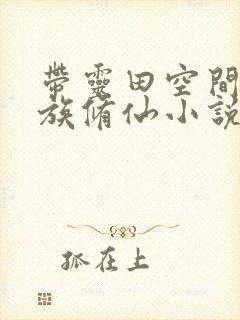 帶靈田空間
族脩仙小說
孤在上